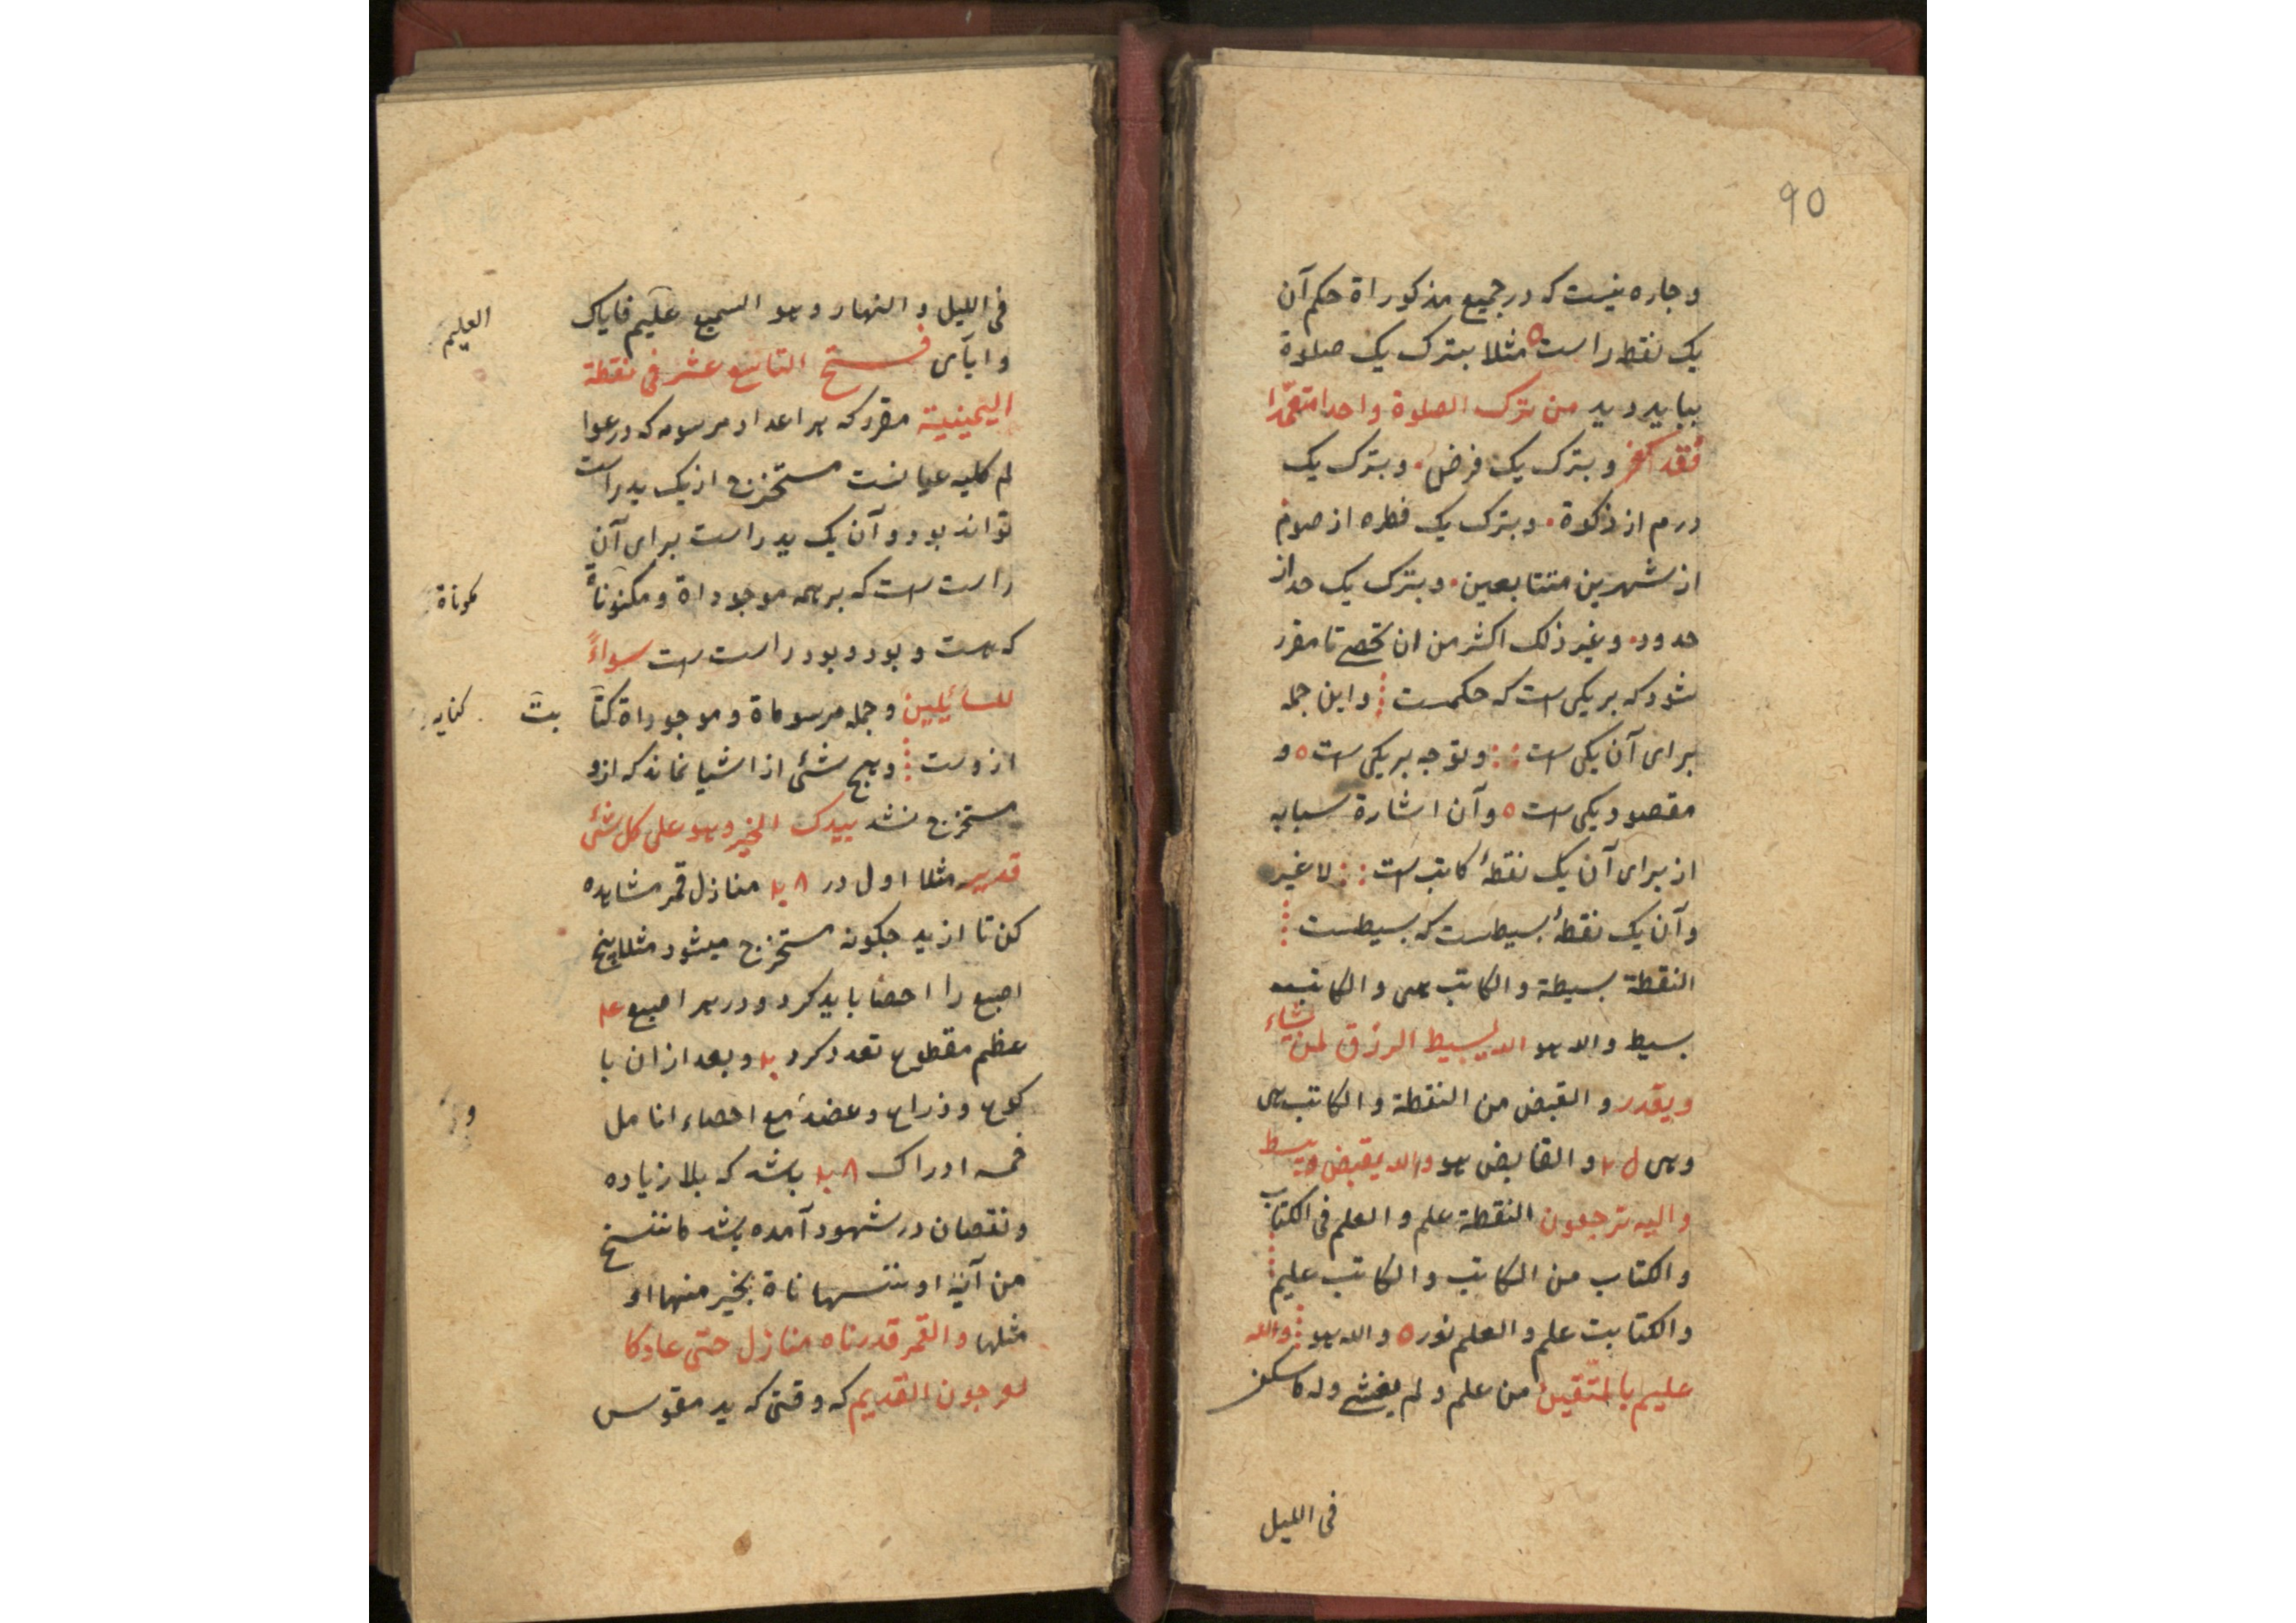 90
و جاره نیست که در جمیع مذکوراة حکم آن
یک نقطه راست مثلا بترک یک صلاوة
بباید دید من ترک الصلوة واحدا متعمّدا
فقد کفر و بترک یک فرض و بترک یک
درم از زکوة و بترک یک قطره از صوم
از شهرین متتابعین و بترک یک حد از
حدود و غیر ذلک اکثر من ان تحصے تا مقرر
شود که بر یکی است که حکمست و این جمله
برای آن یکی است و توجه بر یکی است و
مقصود یکی است و آن اشارة سبابه
از برای آن یک نقطهٔ کاتب است لاغیر
و آن یک نقطهٔ بسیطست که بسیطست
النقطة بسیطة والکاتب هی والکاتب
بسیط والله هو الله یبسیط الرزق لمن یشاء
ویقدر والقبض من النقطة والکاتب هی
وهی والقابض هو والله یقبض ویبسط
والیه ترجعون النقطة علم والعلم فی الکتاب
والکتاب من الکاتب والکاتب علیم
والکتابت علم والعلم نور والله هو والله
علیم بالمتّقین من علم و لم یغشے وله ما سکن
فی اللیل
فی اللیل والنهار وهو السمیع علیم فایاک
العلیم
وایآی فتح التاسع عشر فی نقطة
الیمینیة مقرر که هر اعداد مرسومه که در عوا
لم کلیه عیانست مستخرج از یک ید راست
تواند بود و آن یک ید راست برای آن
راست است که بر همه موجوداة و مکنوناة
مکوناة
که هست و بود و بود راست است سواءً
للسائلین و جمله مرسوماة و موجوداة کتا
بت کنایه
ازوست و هیج شئی از اشیا نماند که ازو
مستخرج نشد بیدک الخیر وهو علی کل شئی
قدیر مثلا اول در ۲۸ منازل قمر مشاهده
کن تا از ید جکونه مستخرج میشود مثلا پنج
اصبع را احصا باید کرد و در هر اصبع
عظم مقطوع تعدد کرد و بعد از ان با
کوع و ذراع و عضد مع احصاء انامل
و
خمسه ادراک ۲۸ باشد که بلا زیاده
و نقصان در شهود آمده باشد ما ننسخ
من آیة او ننسها ناة بخیر منها او
مثلها والقمر قدرناه منازل حتی عاد کا
لعرجون القدیم که وقتی که ید مقوس